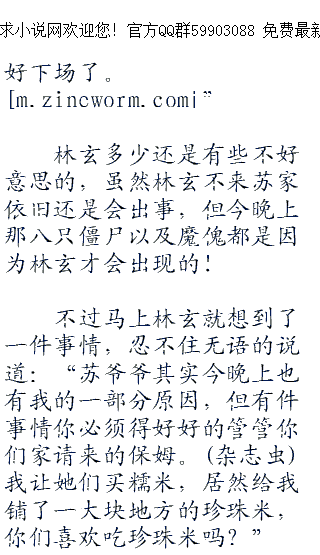 求小说网欢迎您！官方QQ群59903088 免费最新
好下场了。
[m.zincworm.com|”
林玄多少还是有些不好
意思的，虽然林玄不来苏家
依旧还是会出事，但今晚上
那八只僵尸以及魔傀都是因
为林玄才会出现的！
不过马上林玄就想到了
一件事情，忍不住无语的说
道：“苏爷爷其实今晚上也
有我的一部分原因，但有件
事情你必须得好好的管管你
们家请来的保姆。(杂志虫)
我让她们买糯米，居然给我
铺了一大块地方的珍珠米，
你们喜欢吃珍珠米吗？”